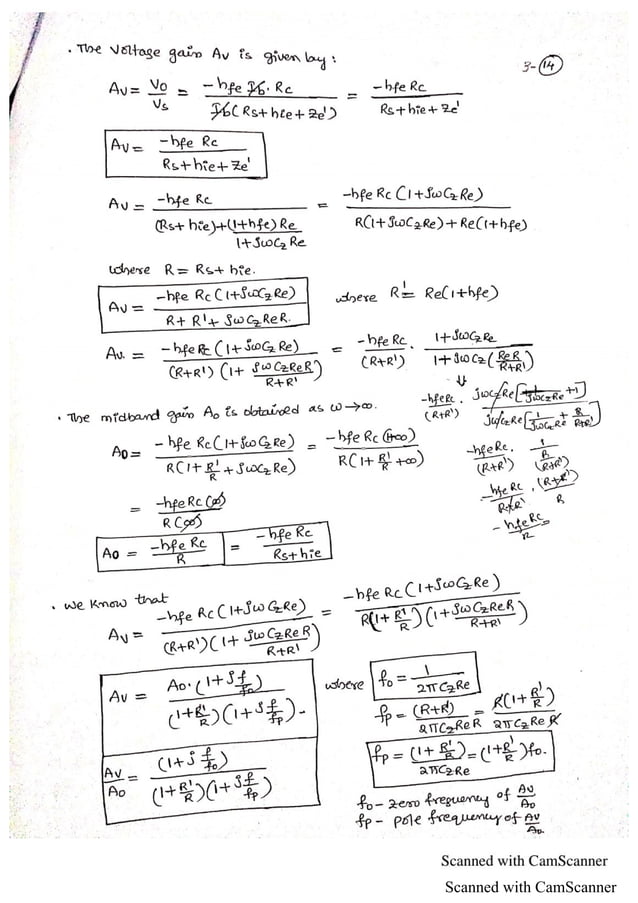 . The Voltage gain Av is given by :
3-14
Av = Vo/Vs = -hfe Ib. Rc / Ib(Rs+hie+Ze') = -hfe Rc / Rs+hie+Ze'
Av = -hfe Rc / Rs+hie+Ze'
Av = -hfe Rc / (Rs+hie)+(1+hfe)Re/1+jωCzRe = -hfe Rc(1+jωCzRe) / R(1+jωCzRe)+Re(1+hfe)
where R = Rs+hie.
Av = -hfe Rc(1+jωCzRe) / R+R'+jωCzReR. where R' = Re(1+hfe)
Av. = -hfe Rc(1+jωCzRe) / (R+R')(1+ jωCzReR/R+R') = -hfe Rc/(R+R') . 1+jωCzRe / 1+jωCz(ReR/R+R')
⇓
-hfeRc/(R+R') . jωCzRe[1/jωCzRe +1] / jωCzRe[1/jωCzRe + R/R+R']
. The midband gain Ao is obtained as ω→∞.
Ao = -hfe Rc(1+jωCzRe) / R(1+R'/R+jωCzRe) = -hfe Rc(1+∞) / R(1+R'/R+∞)
-hfeRc./(R+R') 1/R/(R+R')
= -hfeRc(∞) / R(∞)
-hfeRc/R+R' . (R+R')/R
-hfeRc/R
Ao = -hfe Rc/R = -hfe Rc/Rs+hie
. We Know that
Av = -hfe Rc(1+jωCzRe) / (R+R')(1+ jωCzReR/R+R') = -hfe Rc(1+jωCzRe) / R(1+R'/R)(1+jωCzReR/R+R')
Av = Ao.(1+j f/fo) / (1+R'/R)(1+j f/fp). where fo = 1/2πCzRe
fp = (R+R')/2πCzReR = R(1+R'/R)/2πCzReR
Av/Ao = (1+j f/fo) / (1+R'/R)(1+j f/fp)
fp = (1+R'/R)/2πCzRe = (1+R'/R)fo.
fo- zero frequency of Av/Ao
fp - pole frequency of Av/Ao
Scanned with CamScanner
Scanned with CamScanner